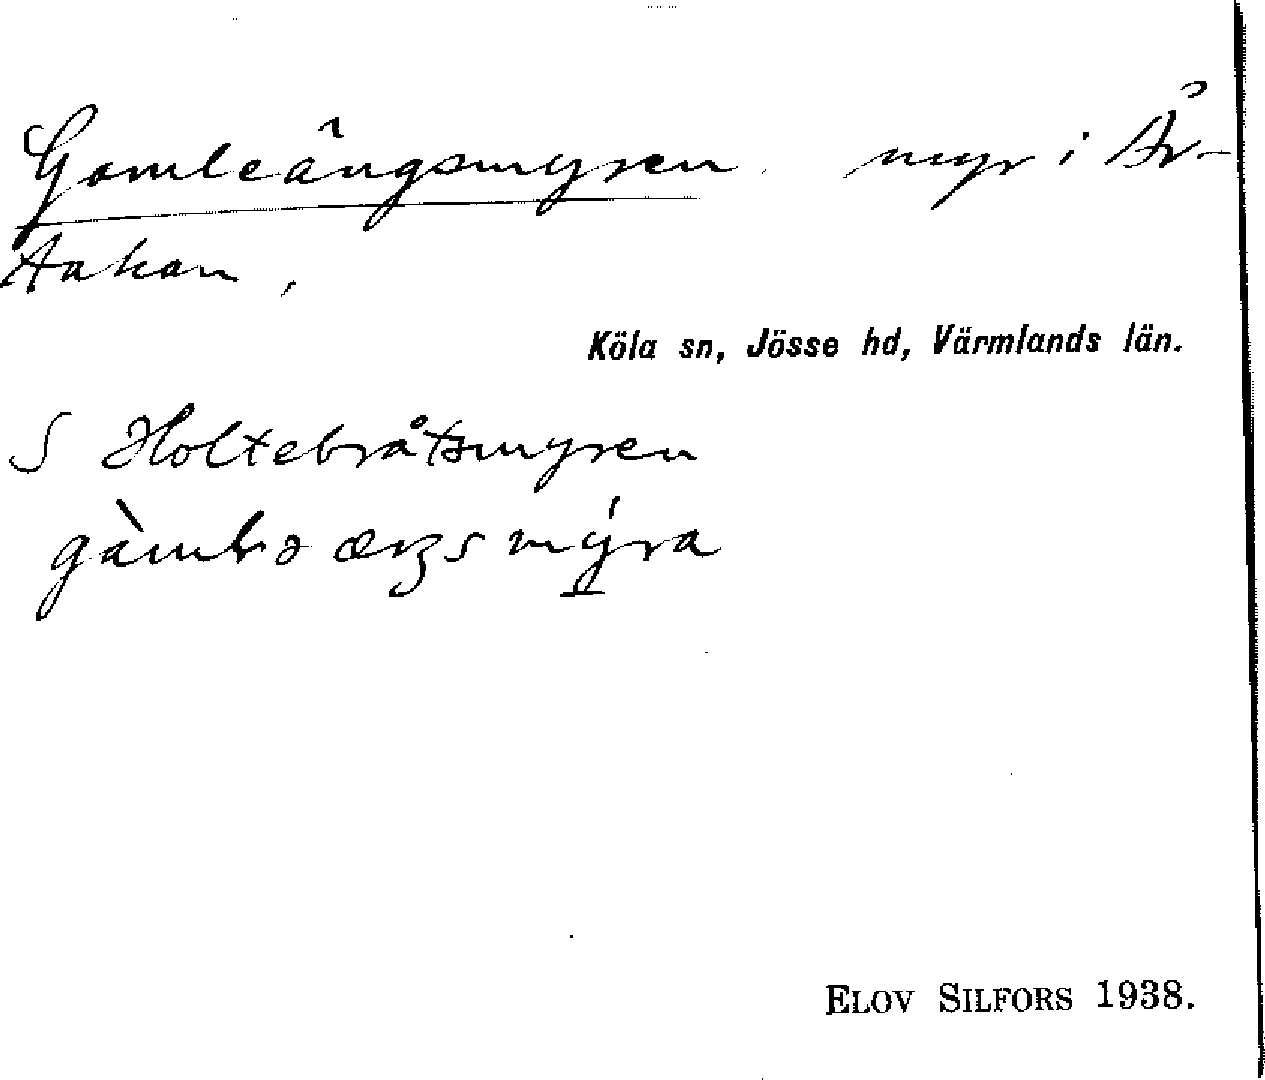 Gamleängsmyren myr i År-
takan,
Köla sn, Jösse hd, Värmlands län.
S Holtebråtsmyren
ELOV SILFORS 1938.